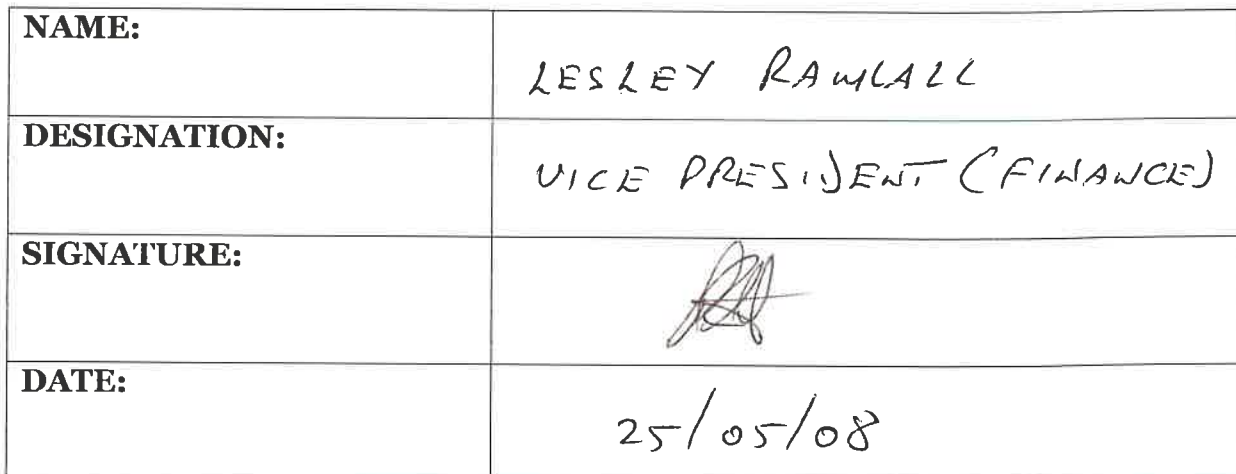 NAME:
LESLEY RAMLALL
DESIGNATION:
VICE PRESIDENT (FINANCE)
SIGNATURE:
DATE:
25/05/08